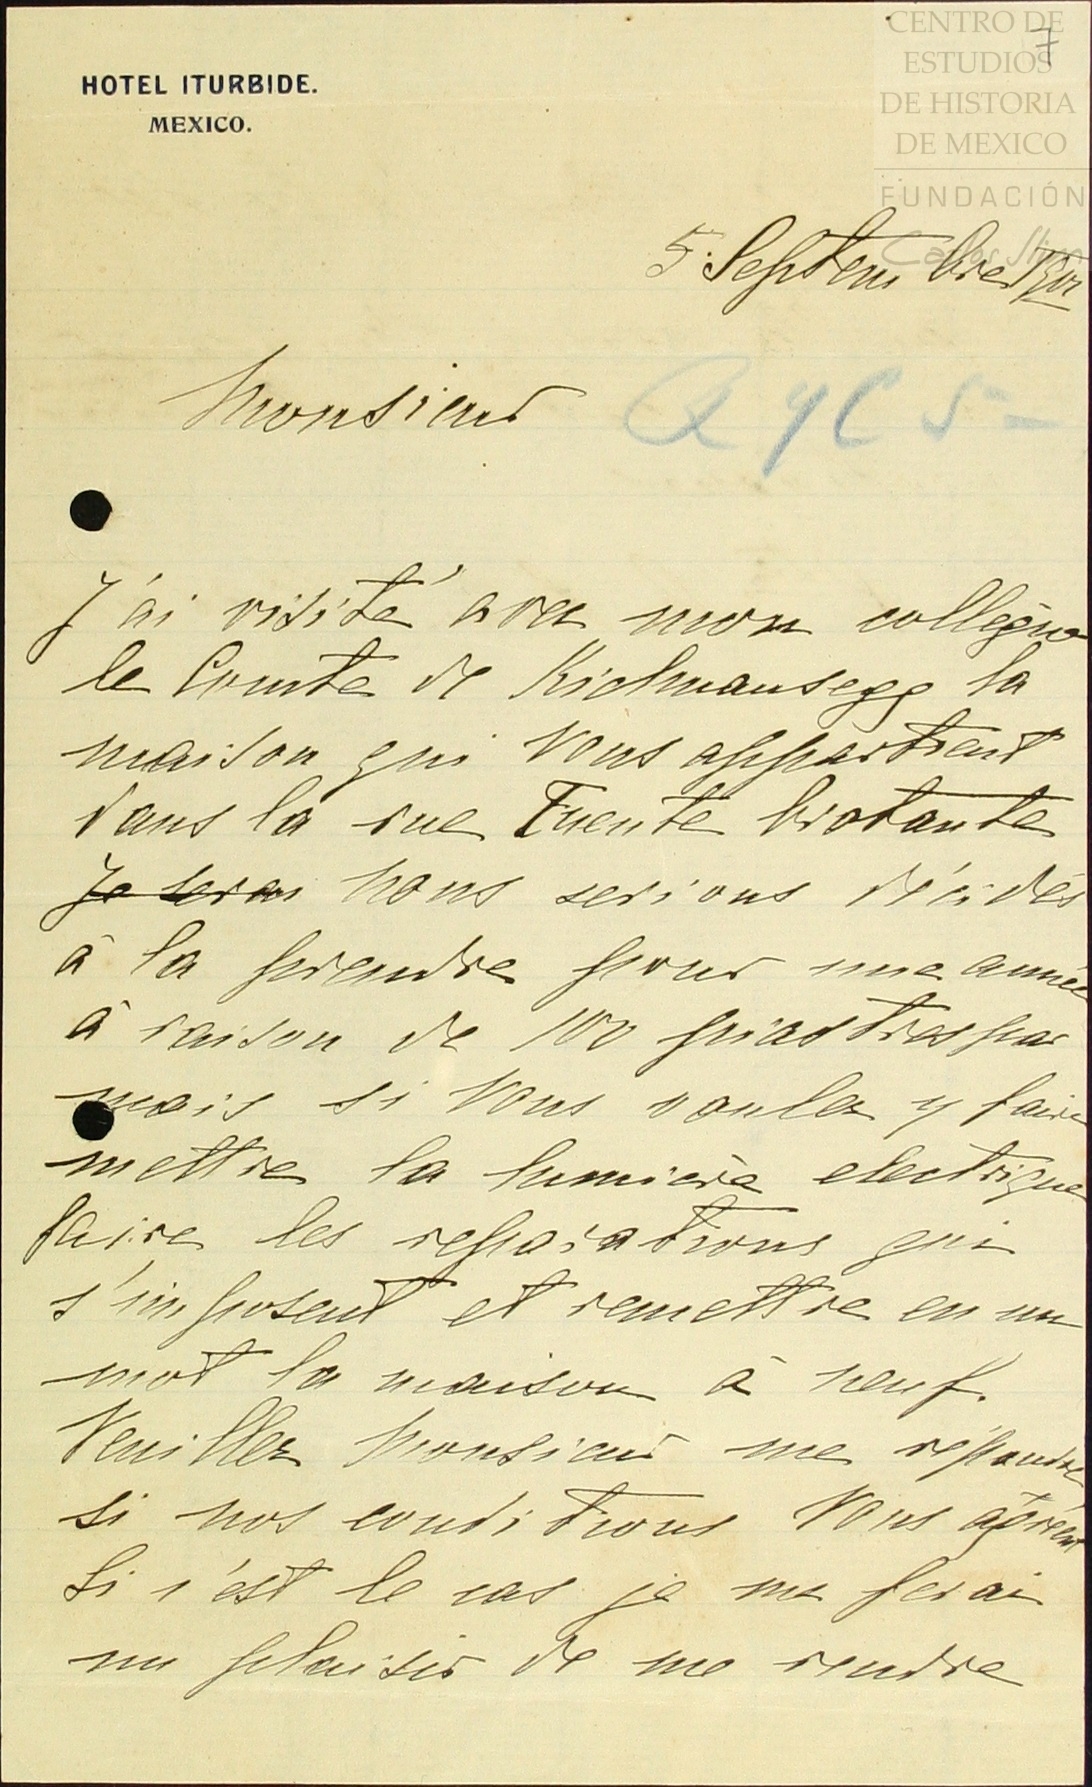 CENTRO DE
ESTUDIOS
DE HISTORIA
DE MEXICO
FUNDACIÓN
Carlos Slim
7
HOTEL ITURBIDE.
MEXICO.
5 Septembre
Monsieur
J'ai visité avec mon collègue
le Comte de Kielmansegg la
maison qui Vous appartient
dans la rue Fuente brotante
Je serai nous serions décidés
à la prendre pour une année
à raison de 100 piastres par
mois si Vous voulez y faire
mettre la lumière electrique
faire les reparations qui
s'imposent et remettre en un
mot la maison à neuf.
Veuillez Monsieur me répondre
si nos conditions Vous agréent
Si c'est le cas je me ferai
un plaisir de me rendre